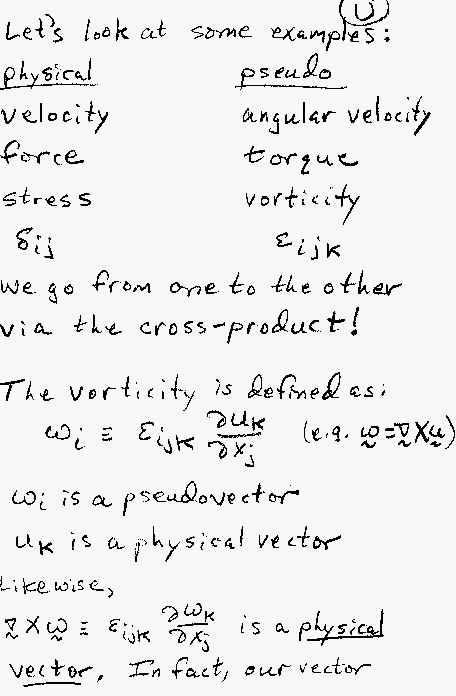 U
Let's look at some examples:
physical pseudo
velocity angular velocity
force torque
stress vorticity
δij εijk
we go from one to the other
via the cross-product!
The vorticity is defined as:
ωi ≡ εijk ∂uk/∂xj (e.g. ω = ∇ × u)
ωi is a pseudovector
uk is a physical vector
Likewise,
∇ × ω ≡ εijk ∂ωk/∂xj is a physical
vector. In fact, our vector